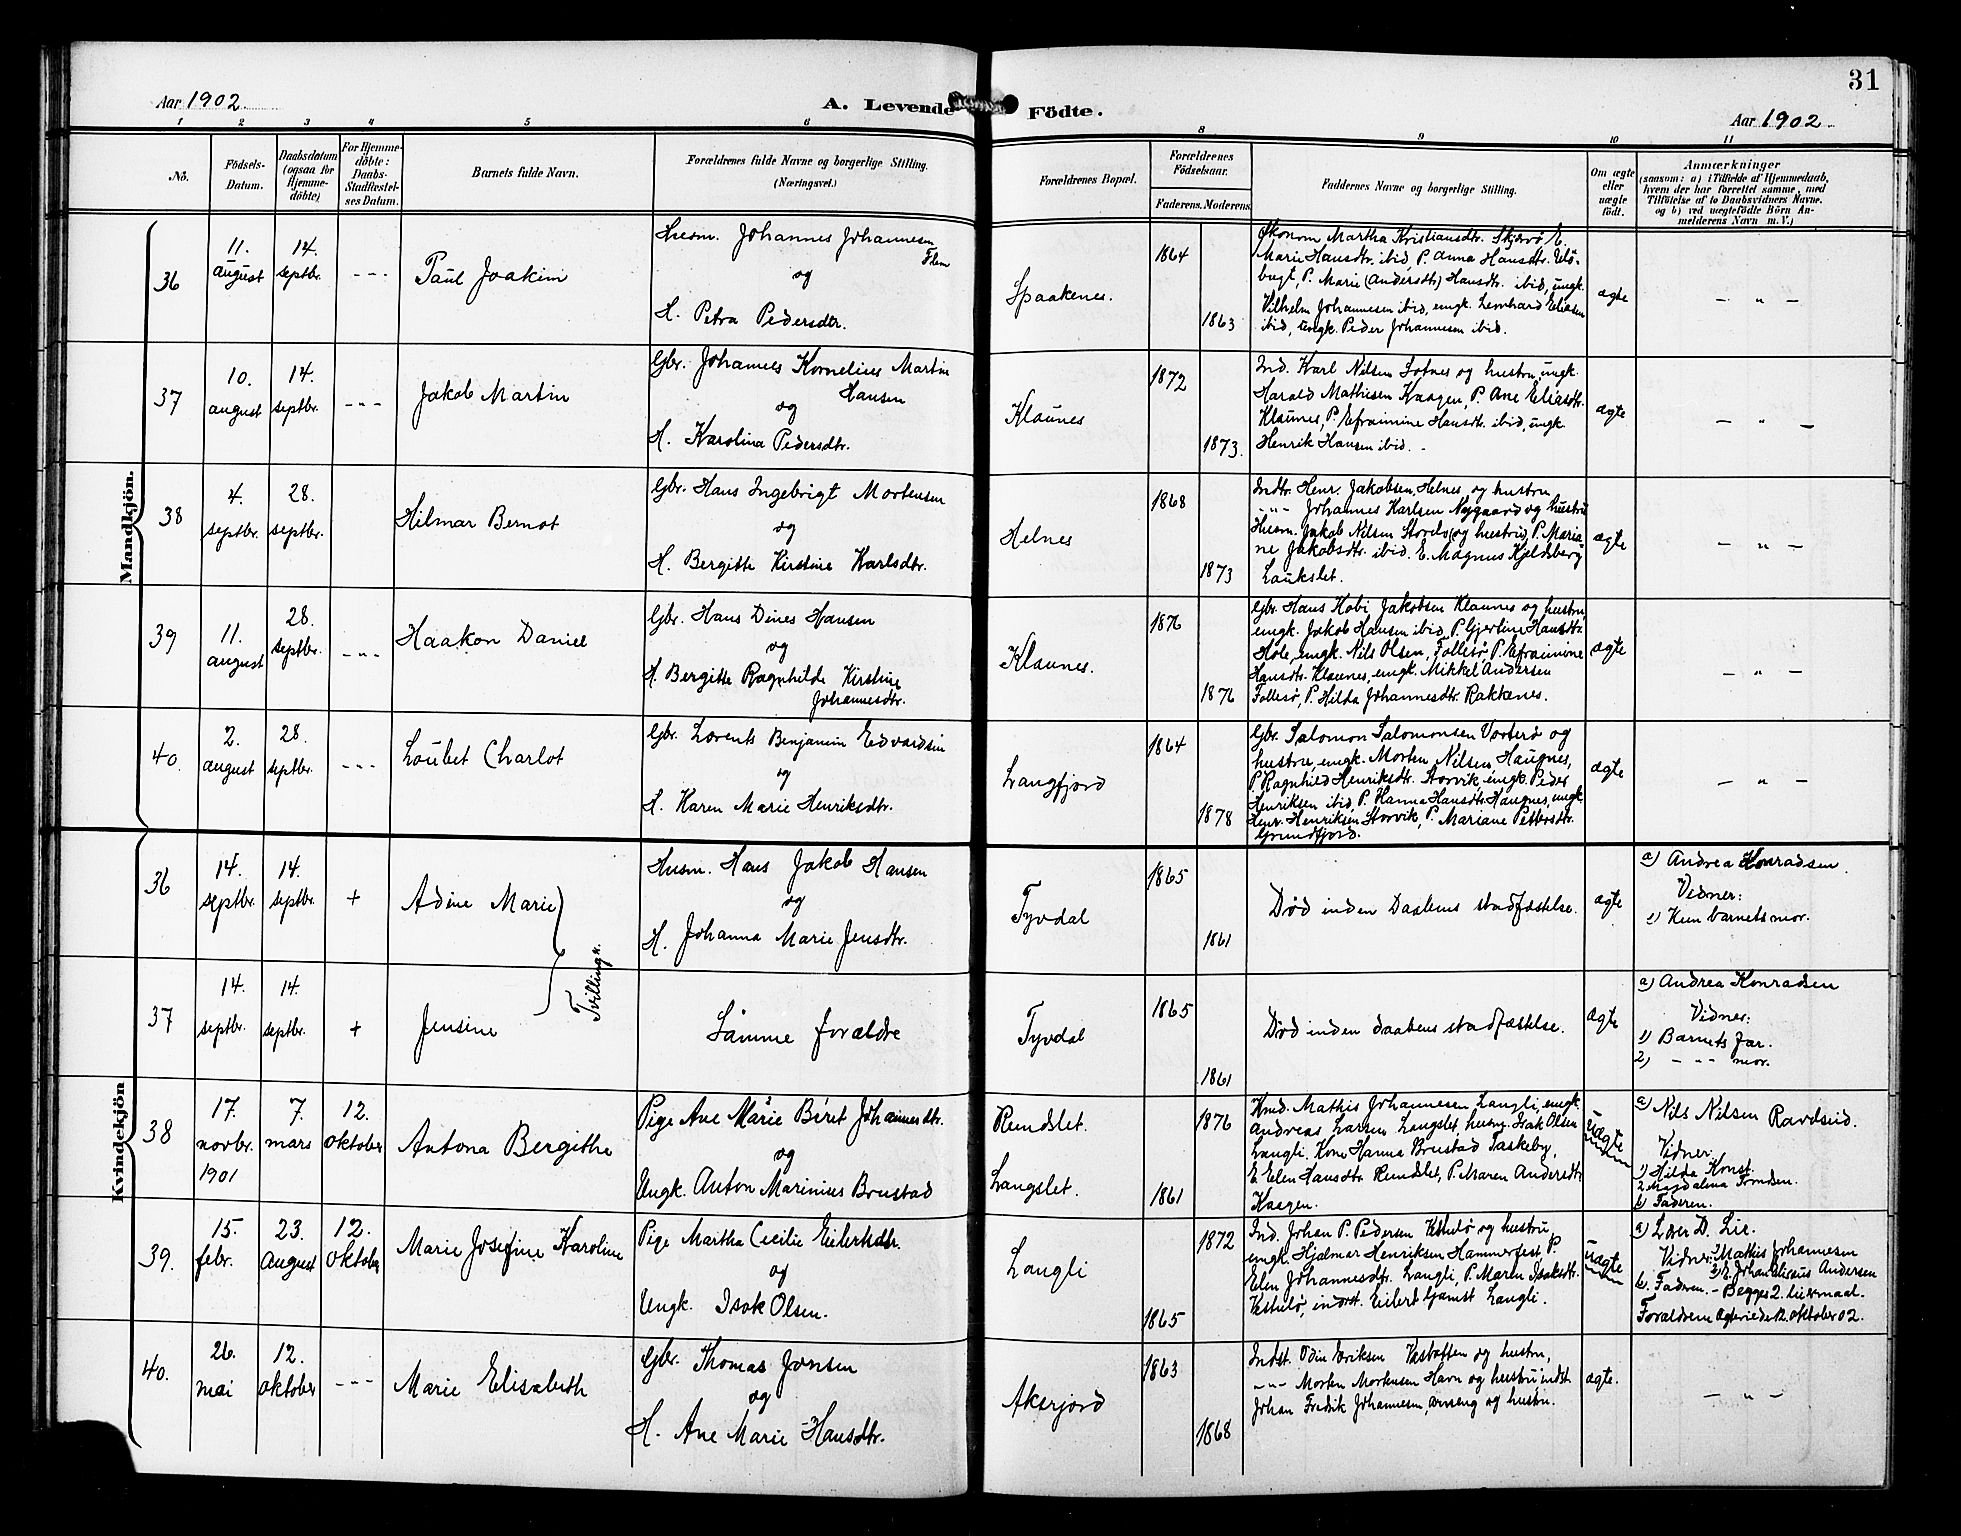 31
Aar 1902.
A. Levende Födte.
Aar 1902
1 2 3 4 5 6 8 9 10 11
No.
Födsels-Datum.
Daabsdatum (ogsaa for Hjemmedöbte)
For Hjemmedöbte: Daabs-Stadfæstelses Datum.
Barnets fulde Navn.
Forældrenes fulde Navne og borgerlige Stilling. (Næringsvei.)
Forældrenes Bopæl.
Forældrenes Födselsaar.
Faderens. Moderens.
Faddernes Navne og borgerlige Stilling.
Om ægte eller uægte födt.
Anmærkninger
(saasom: a) i Tilfælde af Hjemmedaab,
hvem der har forrettet samme, med
Tilföielse af to Daabsvidners Navne.
og b) ved uægtefödte Börn An-
melderens Navn m. V.)
Mandkjön.
36
11. august
14. septbr.
- - -
Paul Joakim
Husm. Johannes Johannesen
Flem
og
H. Petra Pedersdtr.
Spaakenes.
1864
1863
Økonom Martha Kristiansdtr. Skjervø E.
Marie Hansdtr. ibid P. Anna Hansdtr.
bugt, P. Marie (Andersdtr) Hansdtr. ibid, ungk.
Vilhelm Johannesen ibid, ungk. Leonhard Eliasen
ibid, ungk. Peder Johannesen ibid.
ægte
— " —
37
10. august
14. septbr.
- " -
Jakob Martin
Gbr. Johannes Kornelius Martin
Hansen
og
H. Karolina Pedersdtr.
Klaunes
1872
1873.
Ind. Karl Nilsen Sotnes og hustru, ungk.
Harald Mathisen Kaagen, P. Ane Eliasdtr.
Klaunes, P. Efraimine Hansdtr. ibid, ungk.
Henrik Hansen ibid. -
ægte
— " —
38
4. septbr.
28. septbr.
Hilmar Bernot
Gbr. Hans Ingebrigt Mortensen
og
H. Bergitte Kirstine Karlsdtr.
Helnes
1868
1873
Indtr. Henr. Jakobsen, Helnes, og hustru
- " - Johannes Karlsen Nygaard og hustru
Husm. Jakob Nilsen Storelv (og hustru), P. Maria
ne Jakobsdtr. ibid. E. Magnus Kjeldsberg
Laukslet.
ægte
— " —
39
11. august
28. septbr.
- " -
Haakon Daniel
Gbr. Hans Dines Hansen
og
H. Bergitte Ragnhilde Kirstine
Johannesdtr.
Klaunes.
1876
1876
Gbr. Hans Hobi Jakobsen Klaunes og hustru,
ungk. Jakob Hansen ibid, P. Gjertine Hansdtr.
Hole, ungk. Nils Olsen, Follesø P. Efraimine
Hansdtr. Klaunes, ungk. Mikkel Andersen
Follesø, P. Hilda Johannesdtr. Rakkenes.
ægte
— " —
40.
2. august
28. septbr.
- - -
Loubet Charlot
Gbr. Lorents Benjamin Edvardsen
og
H. Karen Marie Henriksdtr.
Langfjord
1864
1878
Gbr. Salomon Salomonsen Vorterø og
hustru, ungk. Morten Nilsen, Haugnes,
P. Ragnhild Henriksdtr. Storvik, ungk. Peder
Henriksen ibid, P. Hanna Hansdtr. Haugnes, ungk.
Henr. Henriksen Storvik, P. Mariane Pettersdtr.
Grundfjord.
ægte
— " —
Kvindekjön
36
14. septbr.
14. septbr.
+
Adine Marie
Tvilling
Husm. Hans Jakob Hansen
og
H. Johanna Marie Jensdtr.
Tyvdal
1865
1861
Død inden Daabens stadfæstelse.
ægte
a) Andrea Konradsen.
Vidner:
1) Kun barnets mor.
37
14. septbr.
14. septbr.
+
Jensine
Samme forældre
Tyvdal
1865
1861
Død inden daabens stadfæstelse.
ægte
a) Andrea Konradsen
Vidner:
1) Barnets far.
2) - " - mor.
38
17. novbr. 1901
7. mars
12. oktober
Antona Bergithe
Pige Ane Marie Beret Johannesdtr.
og
Ungk. Anton Marinius Brustad
Rundslet.
Langslet.
1876
1861
Ind. Mathis Johannesen Langli, ungk.
Andreas Larsen Langslet, husm. Isak Olsen
Langli. Kone Hanna Brustad Taskeby,
E. Elen Hansdtr. Rundslet, P. Maren Andersdtr.
Kaagen.
uægte
a) Nils Nilsen Ravdseid.
Vidner:
1) Hilda Konst.
2 Magdalena Torndsen.
b) Faderen.
39.
15. febr.
23. August
12. oktober
Marie Josefine Karoline
Pige Martha Cecilie Eilertsdtr.
og
Ungk. Isak Olsen.
Langli
1872
1865
Ind. Johan P. Pedersen Ketulø og hustru,
ungk. Hjalmar Henriksen Hammerfest, P.
Elen Johannesdtr. Langli, P. Maren Isaksdtr.
indst. Eilert Gamst Langli.
uægte
a) Lær. D. Lie.
Vidner: 1) Mathis Johannesen
2) E. Johan Elisæus Andersen
b. Faderen. - Begges 2. leiermaal.
Forældrene ægteviede 12. oktober 02.
40.
26. mai
12. oktober
- - -
Marie Elisabeth
Gbr. Thomas Jonsen
og
H. Ane Marie Hansdtr.
Akserjord
1863
1868
Indst. Odin Eriksen og hustru,
- " - Morten Mortensen Havn og hustru indst.
Johan Fredrik Johannesen, og hustru.
ægte.
— " —